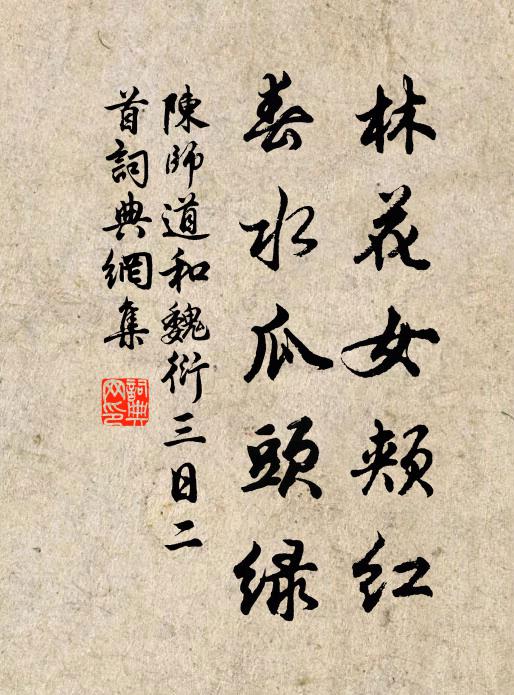 林花女頰紅
春水瓜頭綠
陳師道和魏衍三日二
首詞典網集
詞典網印